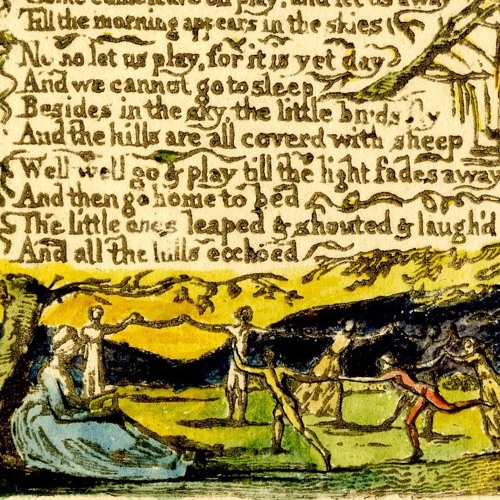 play, and let us away
Till the morning appears in the skies
No no let us play, for it is yet day
And we cannot go to sleep
Besides in the sky, the little birds fly
And the hills are all coverd with sheep
Well well go & play till the light fades away
And then go home to bed
The little ones leaped & shouted & laugh'd
And all the hills ecchoed